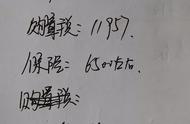 购置税：11957.
保险：6500左右.
购置税：